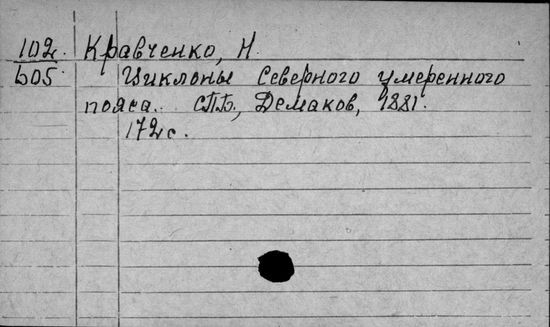 102. Кравченко, Н.
605. Циклоны Северного умеренного
пояса. СПБ, Демаков, 1881.
172 с.